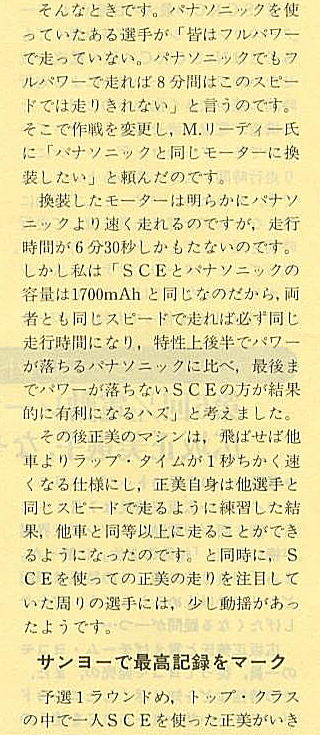 そんなときです。パナソニックを使
っていたある選手が「皆はフルパワー
で走っていない。パナソニックでもフ
ルパワーで走れば8分間はこのスピー
ドでは走りきれない」と言うのです。
そこで作戦を変更し、M.リーディー氏
に「パナソニックと同じモーターに換
装したい」と頼んだのです。
換装したモーターは明らかにパナソ
ニックより速く走れるのですが、走行
時間が6分30秒しかもたないのです。
しかし私は「SCEとパナソニックの
容量は1700mAhと同じなのだから,両
者とも同じスピードで走れば必ず同じ
走行時間になり,特性上後半でパワー
が落ちるパナソニックに比べ,最後ま
でパワーが落ちないSCEの方が結果
的に有利になるハズ」と考えました。
その後正美のマシンは,飛ばせば他
車よりラップ・タイムが1秒ちかく速
くなる仕様にし,正美自身は他選手と
同じスピードで走るように練習した結
果,他車と同等以上に走ることができ
るようになったのです。と同時に,S
CEを使っての正美の走りを注目して
いた周りの選手には,少し動揺があっ
たようです。
サンヨーで最高記録をマーク
予選1ラウンドめ,トップ・クラス
の中で一人SCEを使った正美がいき